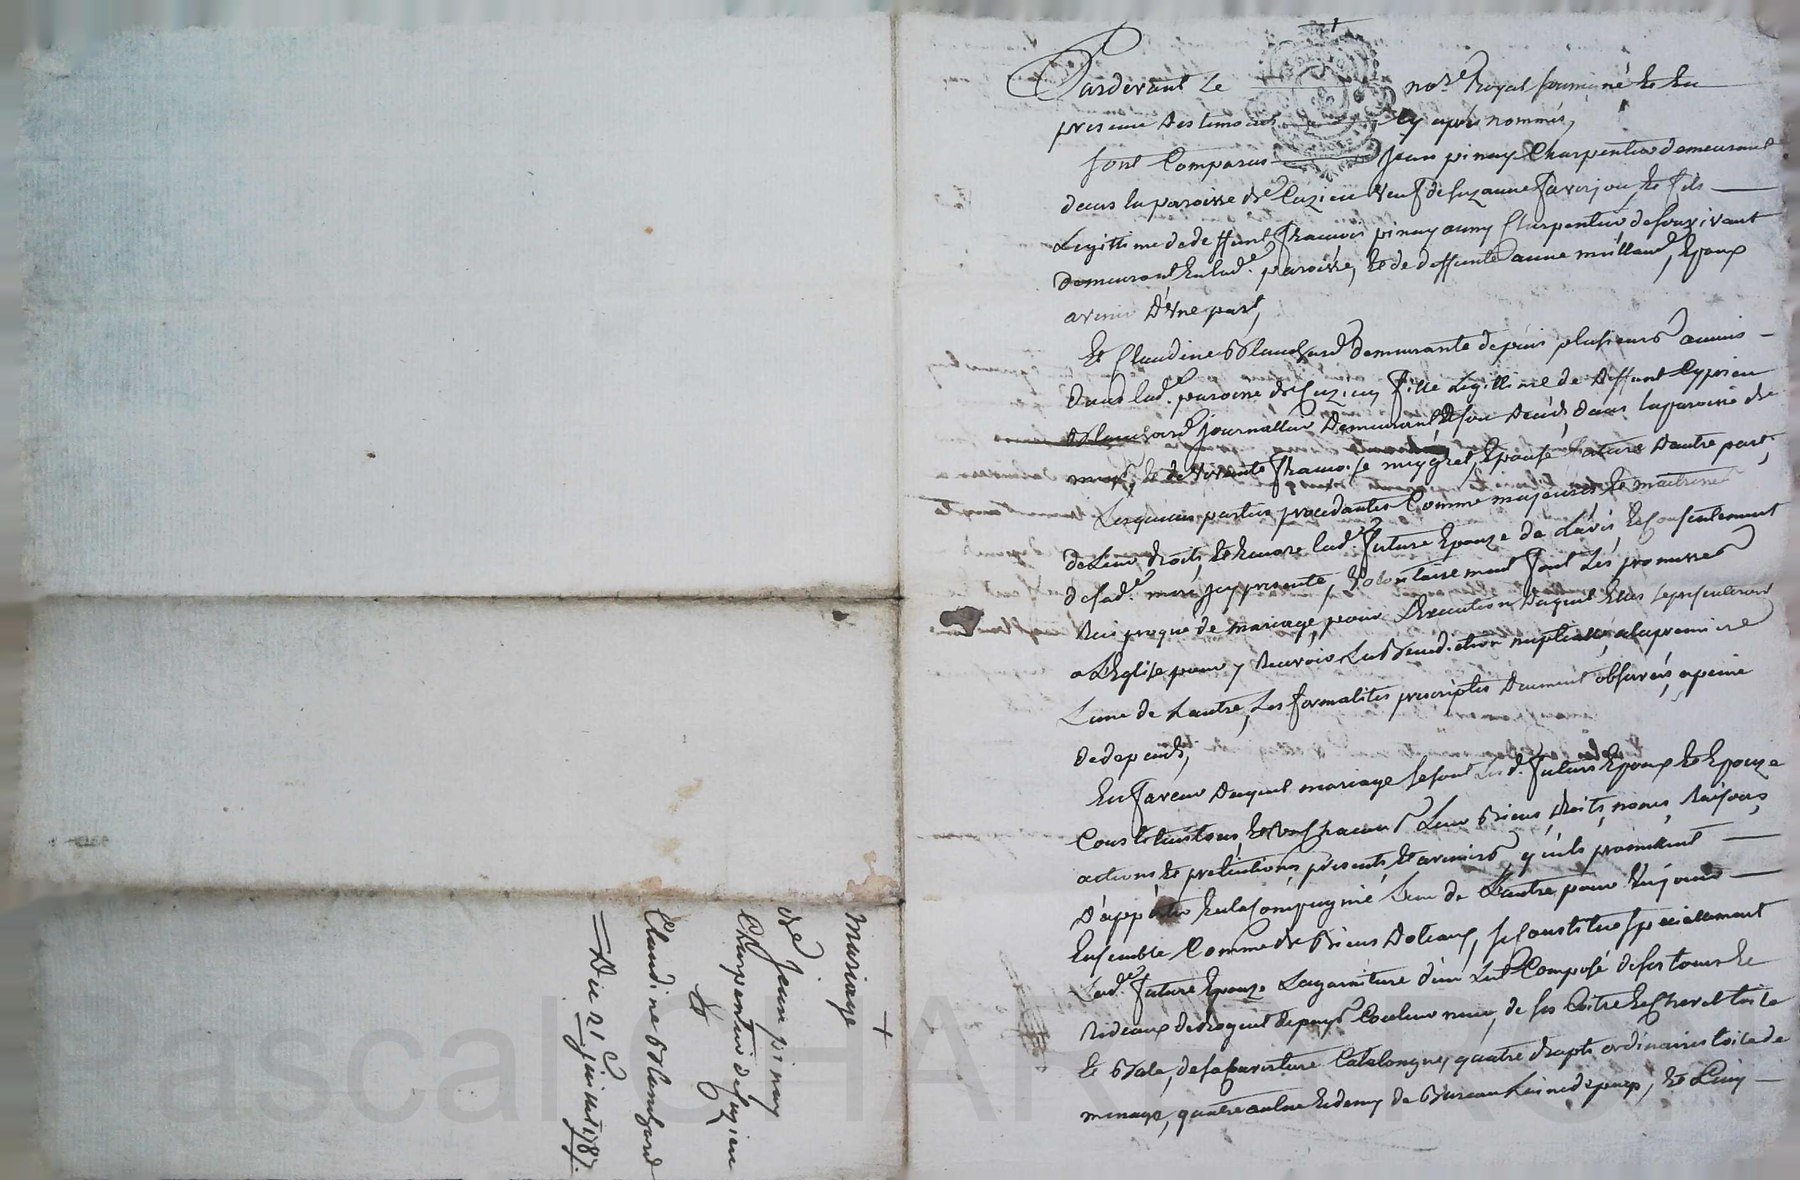 Pardevant Le nore Royal soussigné Et En
presence Des temoins Cy apres nommés,
sont Comparus Jean pinay Charpentier demeurant
dans la paroisse de Cuzieu veuf de suzanne faverjon, Et fils
Legittime de deffunt françois pinay aussy Charpentier de son vivant
demeurant En lade. paroisse, Et de deffunte anne Epoux
avenir D'Vne part,
Et Claudine Blanchard demeurante depuis plusieurs années
Dans lade. paroisse de Cuzieu, fille Legittime de deffunt Cyprien
Blanchard journallier Demeurant Dans la paroisse de
Et de vivante françoise Epouse future D'autre part,
Lesquelles parties procedantes Comme majeures Et maitresses
de Leur droits, Et Encore lade. future Epouze de L'avis, Et Consentement
de sad. mere jcy presente, volontairement font Les promesses
Reciproque de mariage, pour L'Execution Duquel Elles se presenteront
a L'Eglise pour y Recevoir La Benediction nuptialle, a la premiere
L'une de L'autre, Les formalites prescriptes Duement observées, a peine
de depends,
En faveur Duquel mariage se sont Lesd. futurs Epoux Et Epouze
Constitués tous, Et Vn chacuns Leur Biens, Droits, noms, Raisons,
actions Et pretentions, presents, Et avenirs qu'ils promettent
D'apporter En la Compagnie L'un de L'autre pour En jouir
Ensemble Comme de Biens Dotaux, se Constitue specialement
Lade. future Epouze La garniture d'un Lit Composé de son tour de
Rideaux de droguet de pays Couleur noir, de son Coitre Et Chevet toile
Et Bale, de sa Couverture Catalongne, quatre draps ordinaires toile de
menage, quatre aulne Et demy de Bureau Laine de pays, Et Cinq
+
Mariage
de Jean pinay
Charpentier de Cuzieu
Et
Claudine Blanchard
Du 21e juin 1787.